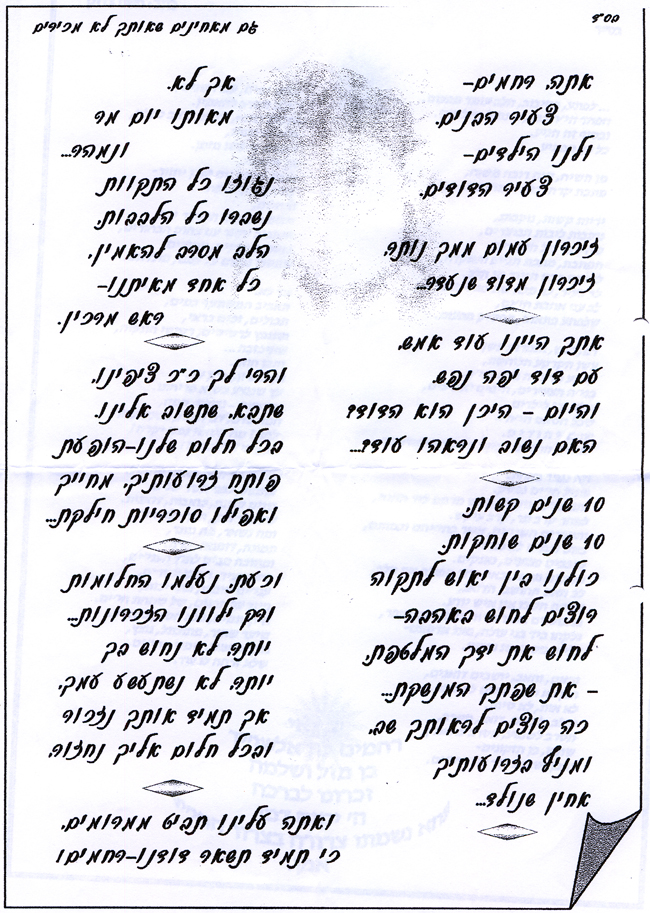 בס״ד
גם מאחינים שאותך לא מכירים
אתה, רחמים–
צעיר הבנים.
ולנו הילדים–
צעיר הדודים.
זיכרון עמום ממך נותר,
זיכרון מדוד שנעדר...
אתך היינו עוד אמש.
עם דוד יפה נפש.
והיום – היכן הוא הדוד?
האם נשוב ונראהו עוד?...
10 שנים קשות.
10 שנים שוחקות.
כולנו בין יאוש לתקוה
רוצים לחוש באהבה–
לחוש את ידך המלטפת,
– את שפתך המנשקת...
כה רוצים לראותך שב,
ומניף בזרועותיך
אחין שנולד...
אך לא.
מאותו יום מר
ונמהר...
נגוזו כל התקוות
נשברו כל הלבבות.
הלב מסרב להאמין,
כל אחד מאיתנו–
ראש מרכין.
והרי לך כ״כ ציפינו,
שתבא, שתשוב אלינו.
בכל חלום שלנו–הופעת
פותח זרועותיך, מחייך
ואפילו סוכריות חילקת...
וכעת, נעלמו החלומות
ורק ילוונו הזכרונות...
יותר, לא נחוש בך
יותר, לא נשתעשע עמך,
אך תמיד אותך נזכור
ובכל חלום אליך נחזור.
ואתה עלינו תביט ממרומים,
כי תמיד תשאר דודנו–רחמים!